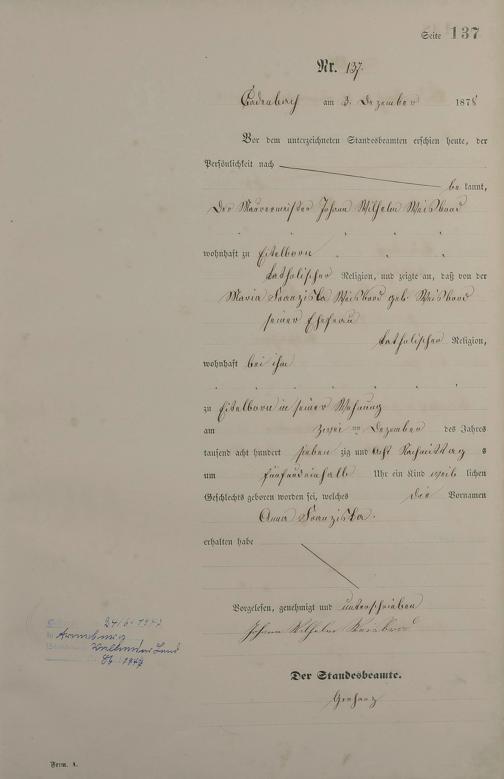 Seite 137
Nr. 137.
Cadenbach am 3. Dezember 1878
Vor dem unterzeichneten Standesbeamten erschien heute, der
Persönlichkeit nach
be kannt,
der Maurermeister Johann Wilhelm Weisbrod
wohnhaft zu Eitelborn
katholischer Religion, und zeigte an, daß von der
Maria Franziska Weisbrod geb. Weisbrod
seiner Ehefrau
katholischer Religion,
wohnhaft bei ihm
zu Eitelborn in seiner Wohnung
am zwei ten Dezember des Jahres
tausend acht hundert sieben zig und acht Nachmittag s
um fünfundeinhalb Uhr ein Kind weib lichen
Geschlechts geboren worden sei, welches die Vornamen
Anna Franziska.
erhalten habe
Vorgelesen, genehmigt und unterschrieben
Johann Wilhelm Weisbrod
Der Standesbeamte.
24.6.1947
in
1947
Form. A.